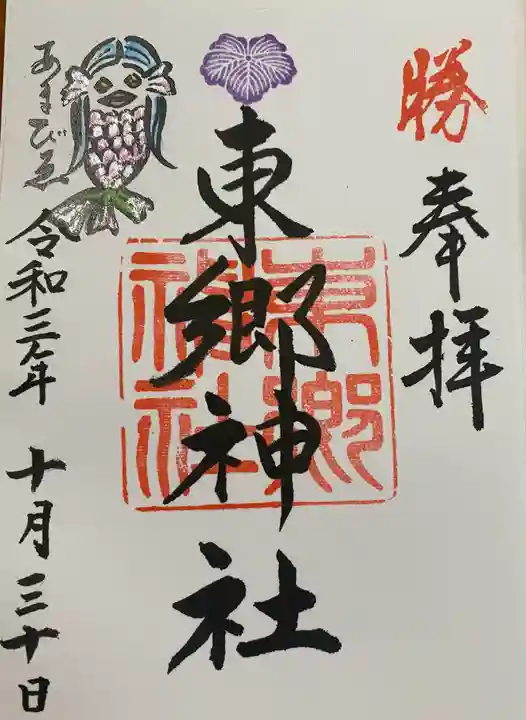 勝
奉拝
東郷神社
東郷神社
あまびゑ
令和三年 十月三十日